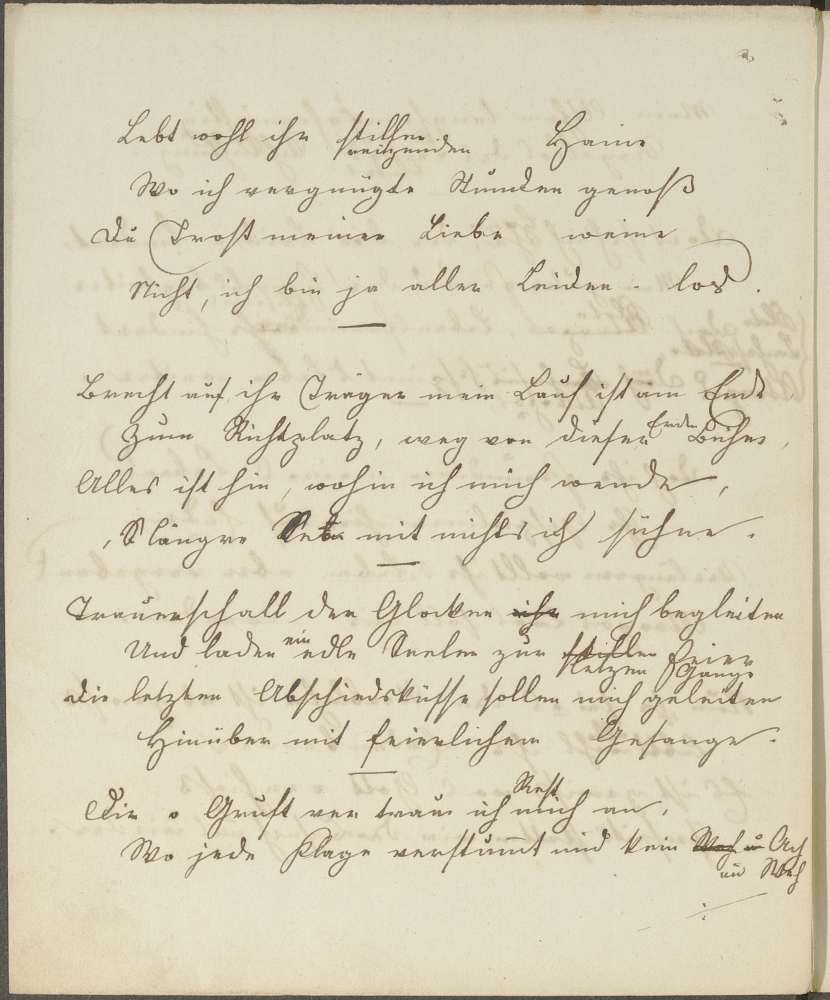 Lebt wohl ihr stillen Haine
reitzenden
Wo ich vergnügte Stunden genoß
Du Trost meiner Liebe weine
Nicht, ich bin ja aller Leiden los.
Brecht auf, ihr Träger mein Lauf ist am Ende
Zum Richtplatz, weg von dieser Erden Bühne,
Alles ist hin, wohin ich mich wende,
längre mit nichts ich sühne.
Trauerschall der Glocken ihr mich begleiten
Und laden ein edle Seelen zur stillen Feier
letzen Gange
Die letzten Abschiedsküsse sollen mich geleiten
Hinüber mit feierlichem Gesange.
Rest
Dir o Gruft ver traue ich mich an,
Wo jede Klage verstummt und kein Weh u Ach
und Weh